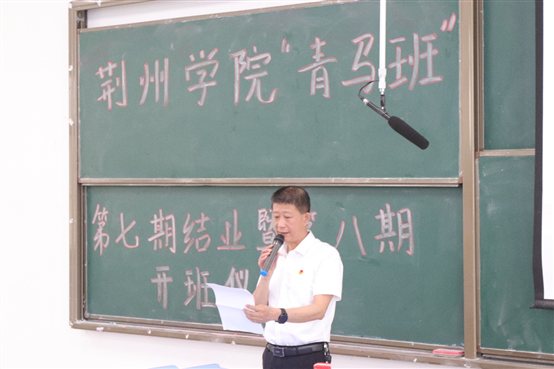 荆州学院"青马班"
第七期结业暨 八期
开班仪